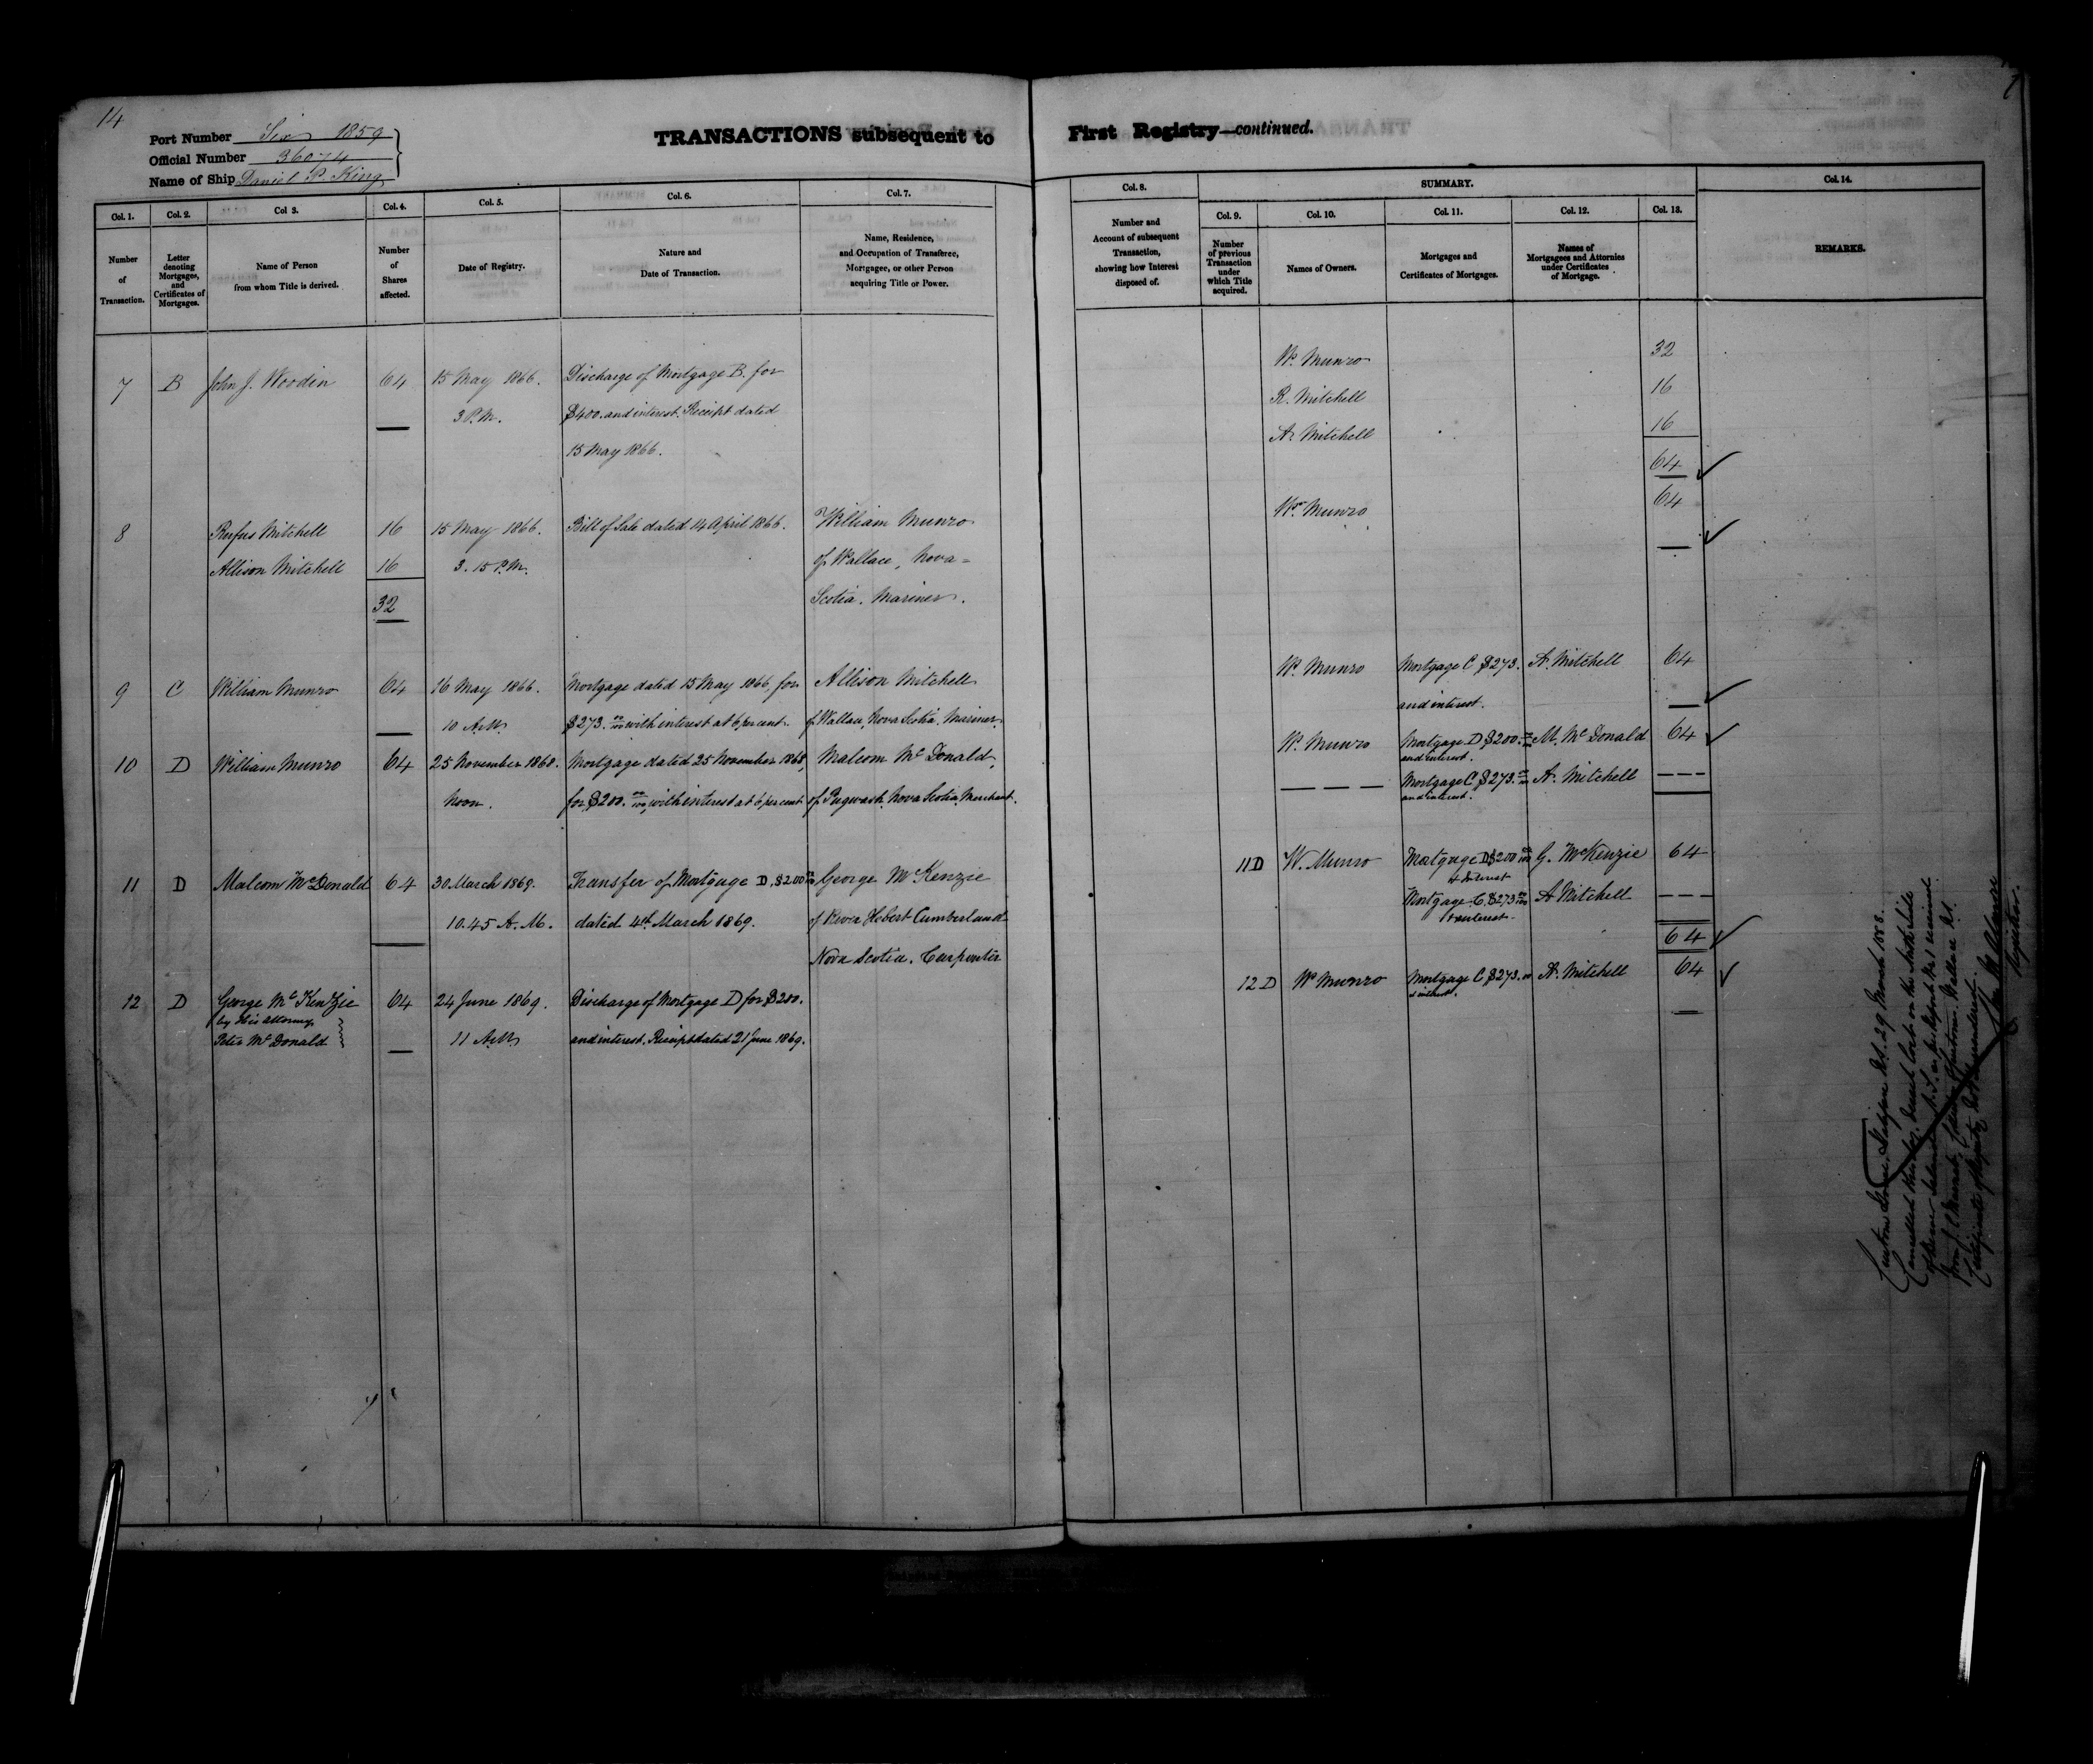 14
Port Number Six 1859
Official Number 36074
Name of Ship Daniel P. King
TRANSACTIONS subsequent to First Registry—continued.
Col. 1.
Number
of
Transaction.
Col. 2.
Letter
denoting
Mortgages,
and
Certificates of
Mortgages.
Col 3.
Name of Person
from whom Title is derived.
Col. 4.
Number
of
Shares
affected.
Col. 5.
Date of Registry.
Col. 6.
Nature and
Date of Transaction.
Col. 7.
Name, Residence,
and Occupation of Transferee,
Mortgagee, or other Person
acquiring Title or Power.
7 B John J. Woodin 64 15 May 1866. Discharge of Mortgage B. for
3 P.M. $400. and interest. Receipt dated
15 May 1866.
8 Rufus Mitchell 16 15 May 1866. Bill of Sale dated 14 April 1866. William Munro
Allison Mitchell 16 3.15 P.M. of Wallace, Nova=
32 Scotia. Mariner.
9 C William Munro 64 16 May 1866. Mortgage dated 15 May 1866, for Allison Mitchell
10 A.M. $273. 00/100 with interest at 6 per cent. of Wallace, Nova Scotia, Mariner.
10 D William Munro 64 25 November 1868. Mortgage dated 25 November 1868, Malcom Mc Donald,
Noon. for $200. 00/100, with interest at 6 per cent of Pugwash, Nova Scotia, Merchant.
11 D Malcom McDonald 64 30 March 1869. Transfer of Mortgage D, $200 00/100 George McKenzie
10.45 A.M. dated 4th March 1869. of River Hebert Cumberland
Nova Scotia. Carpenter
12 D George Mc Kenzie 64 24 June 1869. Discharge of Mortgage D for $200.
by His attorney
Peter Mc Donald 11 A.M. and interest. Receipt dated 21 June 1869.
Col. 8.
Number and
Account of subsequent
Transaction,
showing how Interest
disposed of.
SUMMARY.
Col. 9.
Number
of previous
Transaction
under
which Title
acquired.
Col. 10.
Names of Owners.
Col. 11.
Mortgages and
Certificates of Mortgages.
Col. 12.
Names of
Mortgagees and Attornies
under Certificates
of Mortgage.
Col. 13.
Col. 14.
REMARKS.
Wm Munro 32
R. Mitchell 16
A. Mitchell 16
64
Wm Munro 64
Wm Munro Mortgage C $273. A. Mitchell 64
and interest.
Wm Munro Mortgage D $200. 00/100 M. Mc Donald 64
and interest.
— — — — Mortgage C $273. 00/100 A. Mitchell — — —
and interest.
11 D W. Munro Mortgage D $200 00/100 G. McKenzie 64
& Interest
Mortgage C. $273 00/100 A Mitchell — — —
& interest
64
12 D Wm Munro Mortgage C $273. 00 A. Mitchell 64
& interest.
Custom House, N.S. 29 March 1888.
Cancelled Vessel lost on the
from
Certificate of Registry
Registrar.